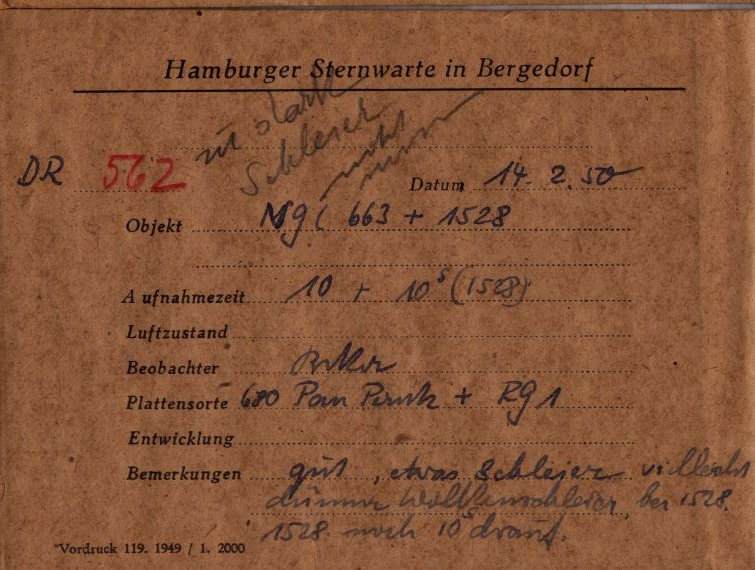 Hamburger Sternwarte in Bergedorf
zu stark
Schleier
nicht
DR 562
Datum 14. 2. 50
Objekt NgC 663 + 1528
Aufnahmezeit 10 + 10s (1528)
Luftzustand
Beobachter
Plattensorte 680 Pan + Rg 1
Entwicklung
Bemerkungen gut, etwas Schleier vielleicht
dünner Wolkenschleier, bei 1528.
1528 noch 10s drauf.
Vordruck 119. 1949 / 1. 2000